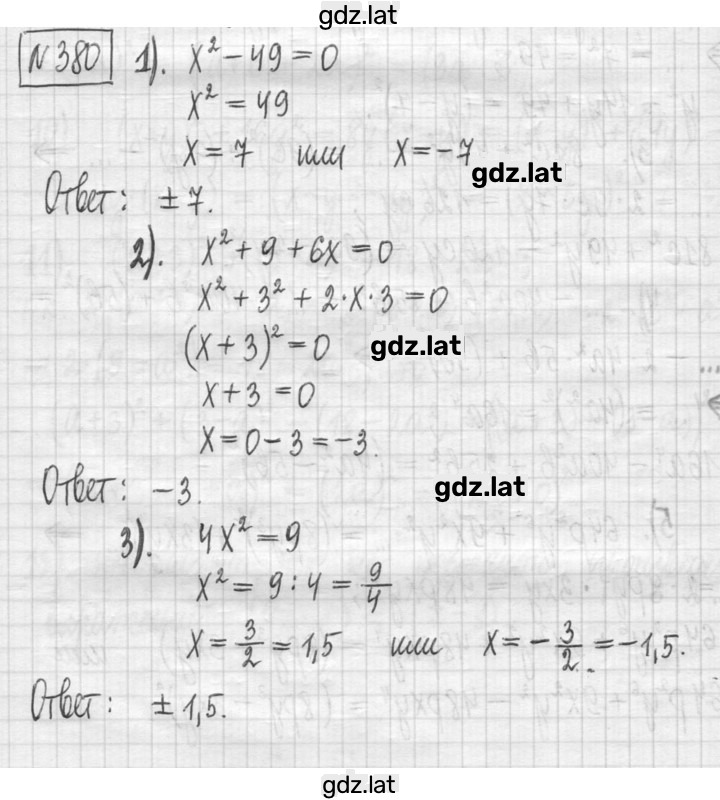 gdz.lat
№ 380 1). x² − 49 = 0
x² = 49
x = 7 или x = −7
gdz.lat
Ответ: ± 7.
2). x² + 9 + 6x = 0
x² + 3² + 2·x·3 = 0
(x + 3)² = 0 gdz.lat
x + 3 = 0
x = 0 − 3 = −3.
Ответ: −3. gdz.lat
3). 4x² = 9
x² = 9 : 4 = 9/4
x = 3/2 = 1,5 или x = − 3/2 = −1,5.
Ответ: ± 1,5.
gdz.lat